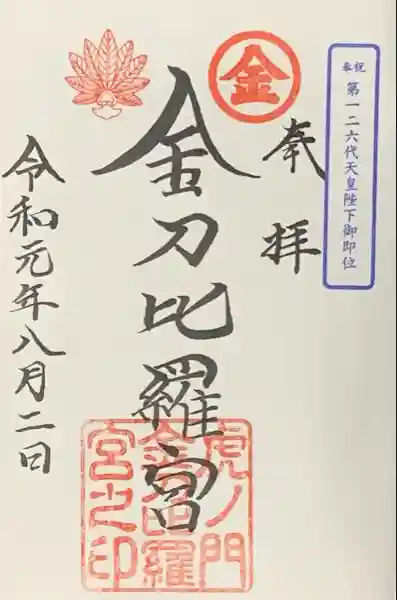 奉祝
第一二六代天皇陛下御即位
奉拝
金
金刀比羅宮
虎ノ門
金刀比羅
宮之印
令和元年八月二日